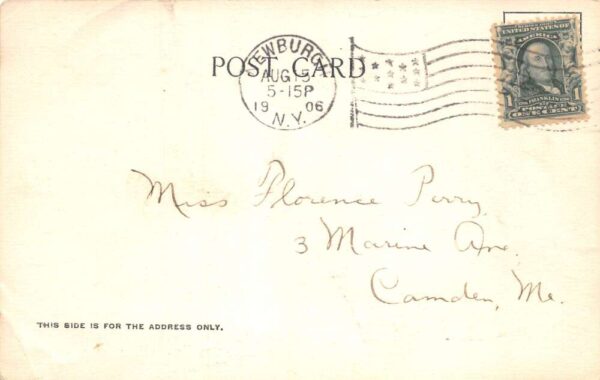 POST CARD
NEWBURGH
AUG 15
5-15P
1906
N.Y.
UNITED STATES OF AMERICA
FRANKLIN
1 POSTAGE 1
ONE CENT
Miss Florence Perry
3 Marine Ave.
Camden, Me.
THIS SIDE IS FOR THE ADDRESS ONLY.